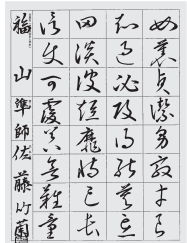 女慕貞潔男效才良
知過必改得能莫忘
罔談彼短靡恃己長
信使可覆器欲難量
福山 準師 佐藤竹蘭